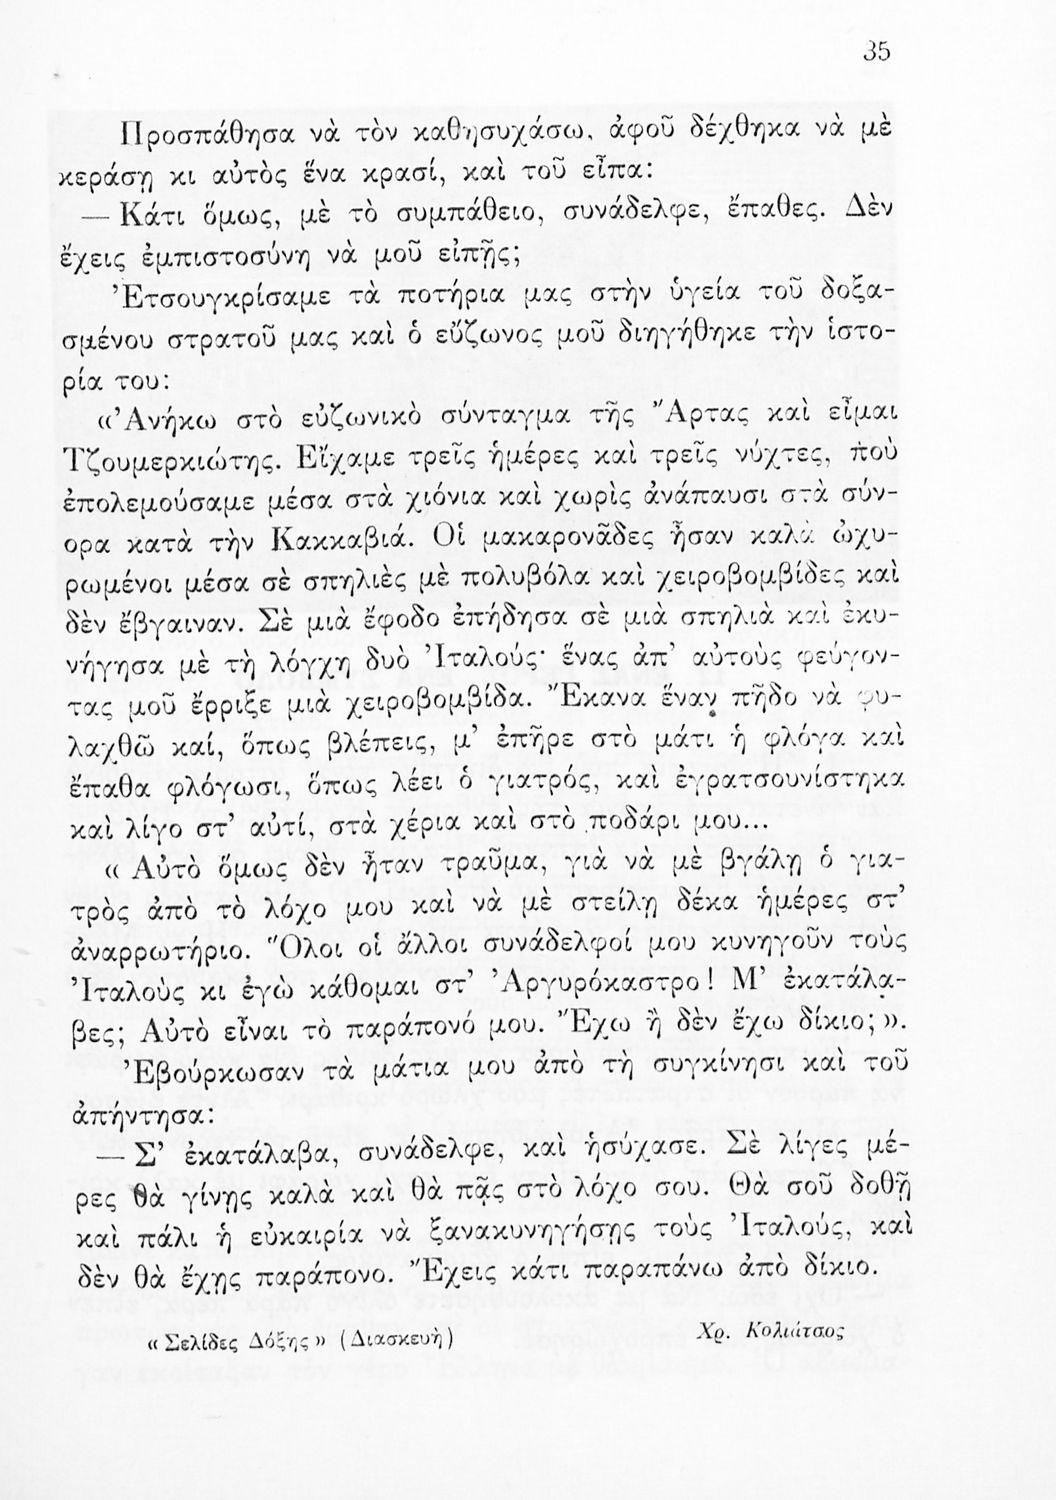 35
Προσπάθησα νὰ τὸν καθησυχάσω, ἀφοῦ δέχθηκα νὰ μὲ
κεράση κι αὐτὸς ἕνα κρασί, καὶ τοῦ εἶπα:
— Κάτι ὅμως, μὲ τὸ συμπάθειο, συνάδελφε, ἔπαθες. Δὲν
ἔχεις ἐμπιστοσύνη νὰ μοῦ εἰπῇς;
Ἐτσουγκρίσαμε τὰ ποτήρια μας στὴν ὑγεία τοῦ δοξα-
σμένου στρατοῦ μας καὶ ὁ εὔζωνος μοῦ διηγήθηκε τὴν ἱστο-
ρία του:
«Ἀνήκω στὸ εὐζωνικὸ σύνταγμα τῆς Ἄρτας καὶ εἶμαι
Τζουμερκιώτης. Εἴχαμε τρεῖς ἡμέρες καὶ τρεῖς νύχτες, ποὺ
ἐπολεμούσαμε μέσα στὰ χιόνια καὶ χωρὶς ἀνάπαυσι στὰ σύν-
ορα κατὰ τὴν Κακκαβιά. Οἱ μακαρονᾶδες ἦσαν καλὰ ὠχυ-
ρωμένοι μέσα σὲ σπηλιὲς μὲ πολυβόλα καὶ χειροβομβίδες καὶ
δὲν ἔβγαιναν. Σὲ μιὰ ἔφοδο ἐπήδησα σὲ μιὰ σπηλιὰ καὶ ἐκυ-
νήγησα μὲ τὴ λόγχη δυὸ Ἰταλούς· ἕνας ἀπ’ αὐτοὺς φεύγον-
τας μοῦ ἔρριξε μιὰ χειροβομβίδα. Ἔκανα ἕναν πῆδο νὰ φυ-
λαχθῶ καί, ὅπως βλέπεις, μ’ ἐπῆρε στὸ μάτι ἡ φλόγα καὶ
ἔπαθα φλόγωσι, ὅπως λέει ὁ γιατρός, καὶ ἐγρατσουνίστηκα
καὶ λίγο στ’ αὐτί, στὰ χέρια καὶ στὸ ποδάρι μου...
« Αὐτὸ ὅμως δὲν ἦταν τραῦμα, γιὰ νὰ μὲ βγάλη ὁ για-
τρὸς ἀπὸ τὸ λόχο μου καὶ νὰ μὲ στείλη δέκα ἡμέρες στ’
ἀναρρωτήριο. Ὅλοι οἱ ἄλλοι συνάδελφοί μου κυνηγοῦν τοὺς
Ἰταλοὺς κι ἐγὼ κάθομαι στ’ Ἀργυρόκαστρο! Μ’ ἐκατάλα-
βες; Αὐτὸ εἶναι τὸ παράπονό μου. Ἔχω ἢ δὲν ἔχω δίκιο;».
Ἐβούρκωσαν τὰ μάτια μου ἀπὸ τὴ συγκίνησι καὶ τοῦ
ἀπήντησα:
— Σ’ ἐκατάλαβα, συνάδελφε, καὶ ἡσύχασε. Σὲ λίγες μέ-
ρες θὰ γίνῃς καλὰ καὶ θὰ πᾷς στὸ λόχο σου. Θὰ σοῦ δοθῇ
καὶ πάλι ἡ εὐκαιρία νὰ ξανακυνηγήσῃς τοὺς Ἰταλούς, καὶ
δὲν θὰ ἔχῃς παράπονο. Ἔχεις κάτι παραπάνω ἀπὸ δίκιο.
«Σελίδες Δόξης» (Διασκευὴ) Χρ. Κολιάτσος